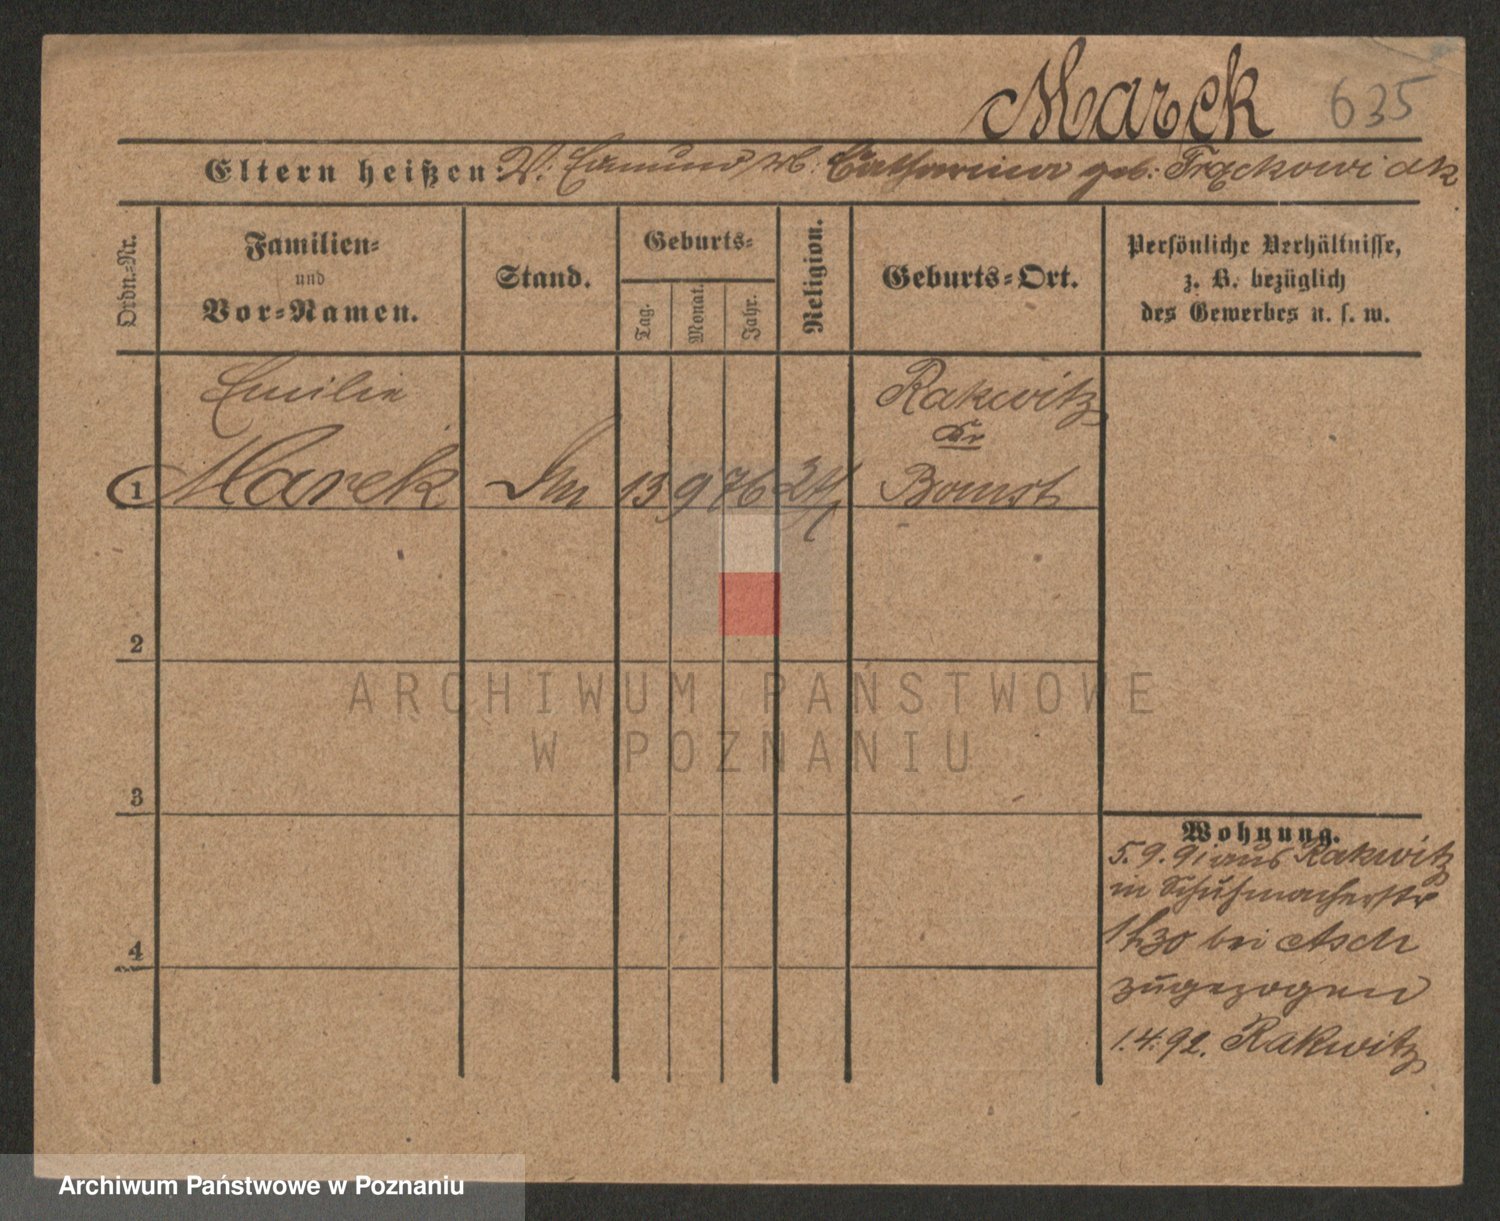 Marek 635
Eltern heißen: V. Edmund, M. Catharina geb. Frąckowiak
Ordn.-Nr.
Familien-
und
Vor-Namen.
Stand.
Geburts-
Tag.
Monat.
Jahr.
Religion.
Geburts-Ort.
Persönliche Verhältnisse,
z. B. bezüglich
des Gewerbes u. s. w.
Emilie
Marek
Rakwitz
Kr
Bomst
1
13 9 76
2
3
4
Wohnung.
5.9.91 aus Rakwitz
in Schuhmacherstr
bei Asch
zugezogen
1.4.92. Rakwitz
ARCHIWUM PAŃSTWOWE
W POZNANIU
Archiwum Państwowe w Poznaniu